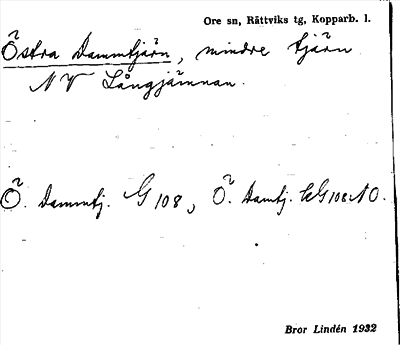 Ore sn, Rättviks tg, Kopparb. l.
Östra Dammtjärn, mindre tjärn
NV Långjämnan.
Ö. Dammtj. G 108, Ö. Damtj. G 108 NO.
Bror Lindén 1932